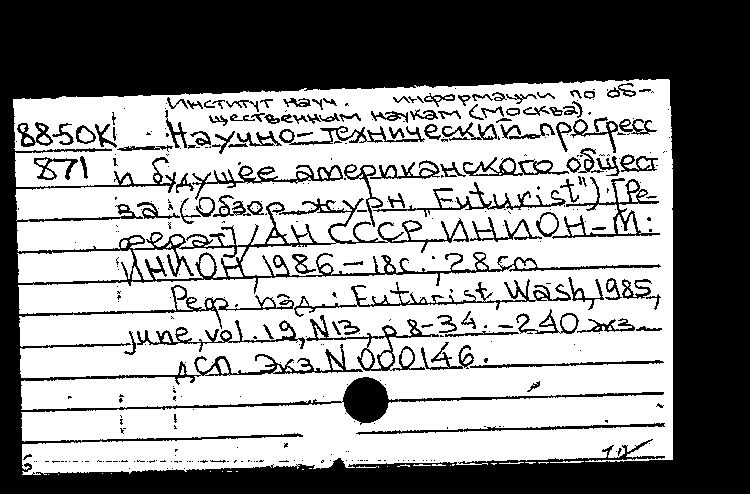 Институт науч. информации по об-
щественным наукам (Москва).
88-50К Научно-технический прогресс
871 и будущее американского общест
ва: (Обзор журн. "Futurist") [Ре-
ферат] / АН СССР, ИНИОН - М.:
ИНИОН, 1986. - 18с.; 28 cm
Реф. изд.: Futurist, Wash, 1985,
june, vol. 19, N13, p 8-34. - 240 экз.
ДСП. Экз. N 000146.